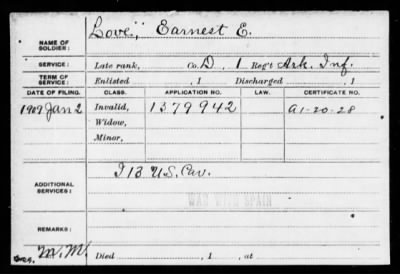 NAME OF SOLDIER: Love, Earnest E.
SERVICE: Late rank, Co. D, 1 Reg't Ark. Inf.
TERM OF SERVICE: Enlisted , 1 Discharged , 1
DATE OF FILING. CLASS. APPLICATION NO. LAW. CERTIFICATE NO.
1909 Jan 2 Invalid, 1379942 A1-20-28
Widow,
Minor,
ADDITIONAL SERVICES: I 13 U.S. Cav.
WAR WITH SPAIN
REMARKS:
M.M. Died , 1 , at